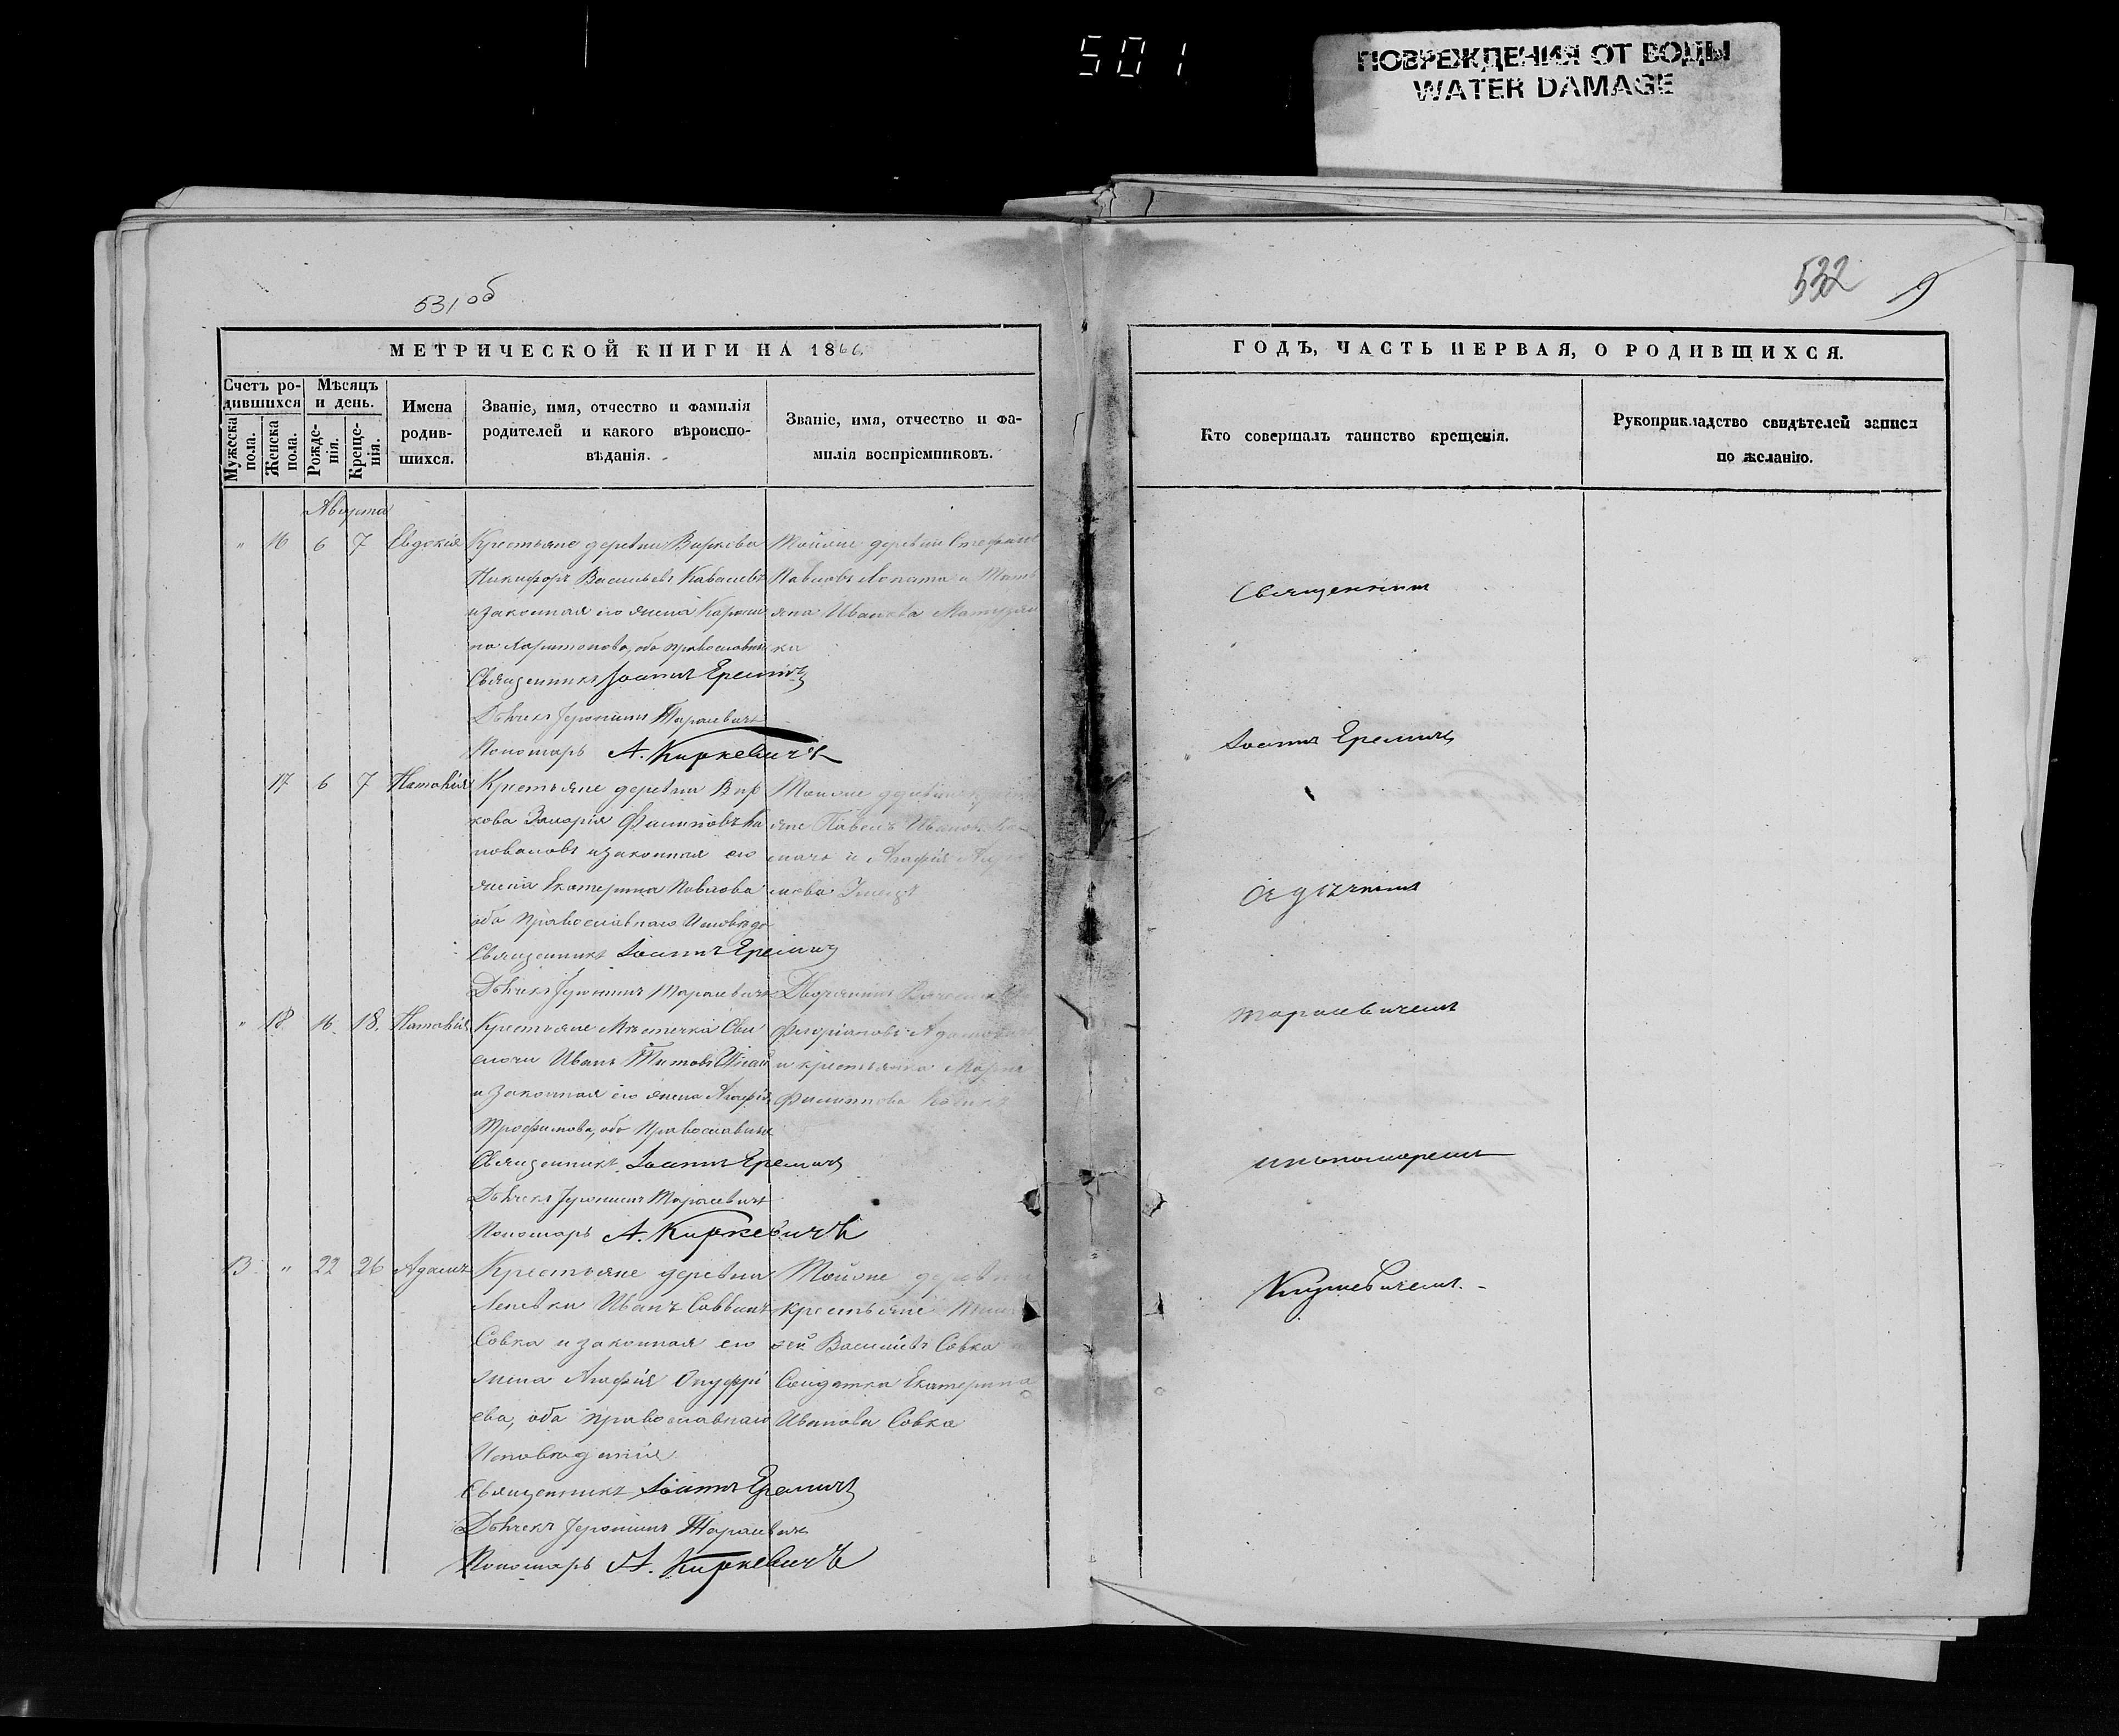 501
ПОВРЕЖДЕНИЯ ОТ ВОДЫ
WATER DAMAGE
531 об
532
9
МЕТРИЧЕСКОЙ КНИГИ НА 1866
ГОДЪ, ЧАСТЬ ПЕРВАЯ, О РОДИВШИХСЯ.
Счетъ ро-
дившихся
Мужеска пола.
Женска пола.
Мѣсяцъ
и день.
Рожде-
нія.
Креще-
нія.
Имена
родив-
шихся.
Званіе, имя, отчество и фамилія
родителей и какого вѣроиспо-
вѣданія.
Званіе, имя, отчество и фа-
милія воспріемниковъ.
Кто совершалъ таинство крещенія.
Рукоприкладство свидѣтелей записи
по желанію.
Августа
" 16 6 7 Евдокія
Крестьяне деревни Виркова
Никифоръ Васильевъ
и законная его жена
Харитонова, оба православные
Священникъ Іоаннъ Еремичъ
Дьячекъ Іеронимъ Тарасевичъ
Пономарь А. Киркевичъ
Тойже деревни Стефанъ
Павловъ Лопата и
Иванова
17 6 7 Наталія
Крестьяне деревни Вир
кова Захарія Филиповъ Ка
поваловъ и законная его
жена Екатерина Павлова
оба православнаго
Священникъ Іоаннъ Еремичъ
Дьячекъ Іеронимъ Тарасевичъ
Тойже деревни
яне Павелъ Ивановъ
и Агафія
" 18 16 18 Наталія
Крестьяне Мѣстечка Сви
слочи Иванъ Титовъ
и законная его жена Агафія
Трофимова, оба Православные
Священникъ Іоаннъ Еремичъ
Дьячекъ Іеронимъ Тарасевичъ
Пономарь А. Киркевичъ
Дворянинъ
Флоріановъ
и крестьянка Марія
Филиппова
13 " 22 26 Адамъ
Крестьяне деревни
Иванъ Саввинъ
Совка и законная его
жена Агафія Онуфрі
ева, оба православнаго
Исповѣданія
Священникъ Іоаннъ Еремичъ
Дьячекъ Іеронимъ Тарасевичъ
Пономарь А. Киркевичъ
Тойже деревни
крестьяне Тимо
фей Васильевъ Совка и
Солдатка Екатерина
Иванова Совка
Священникъ
Іоаннъ Еремичъ
Тарасевичемъ
и пономаремъ